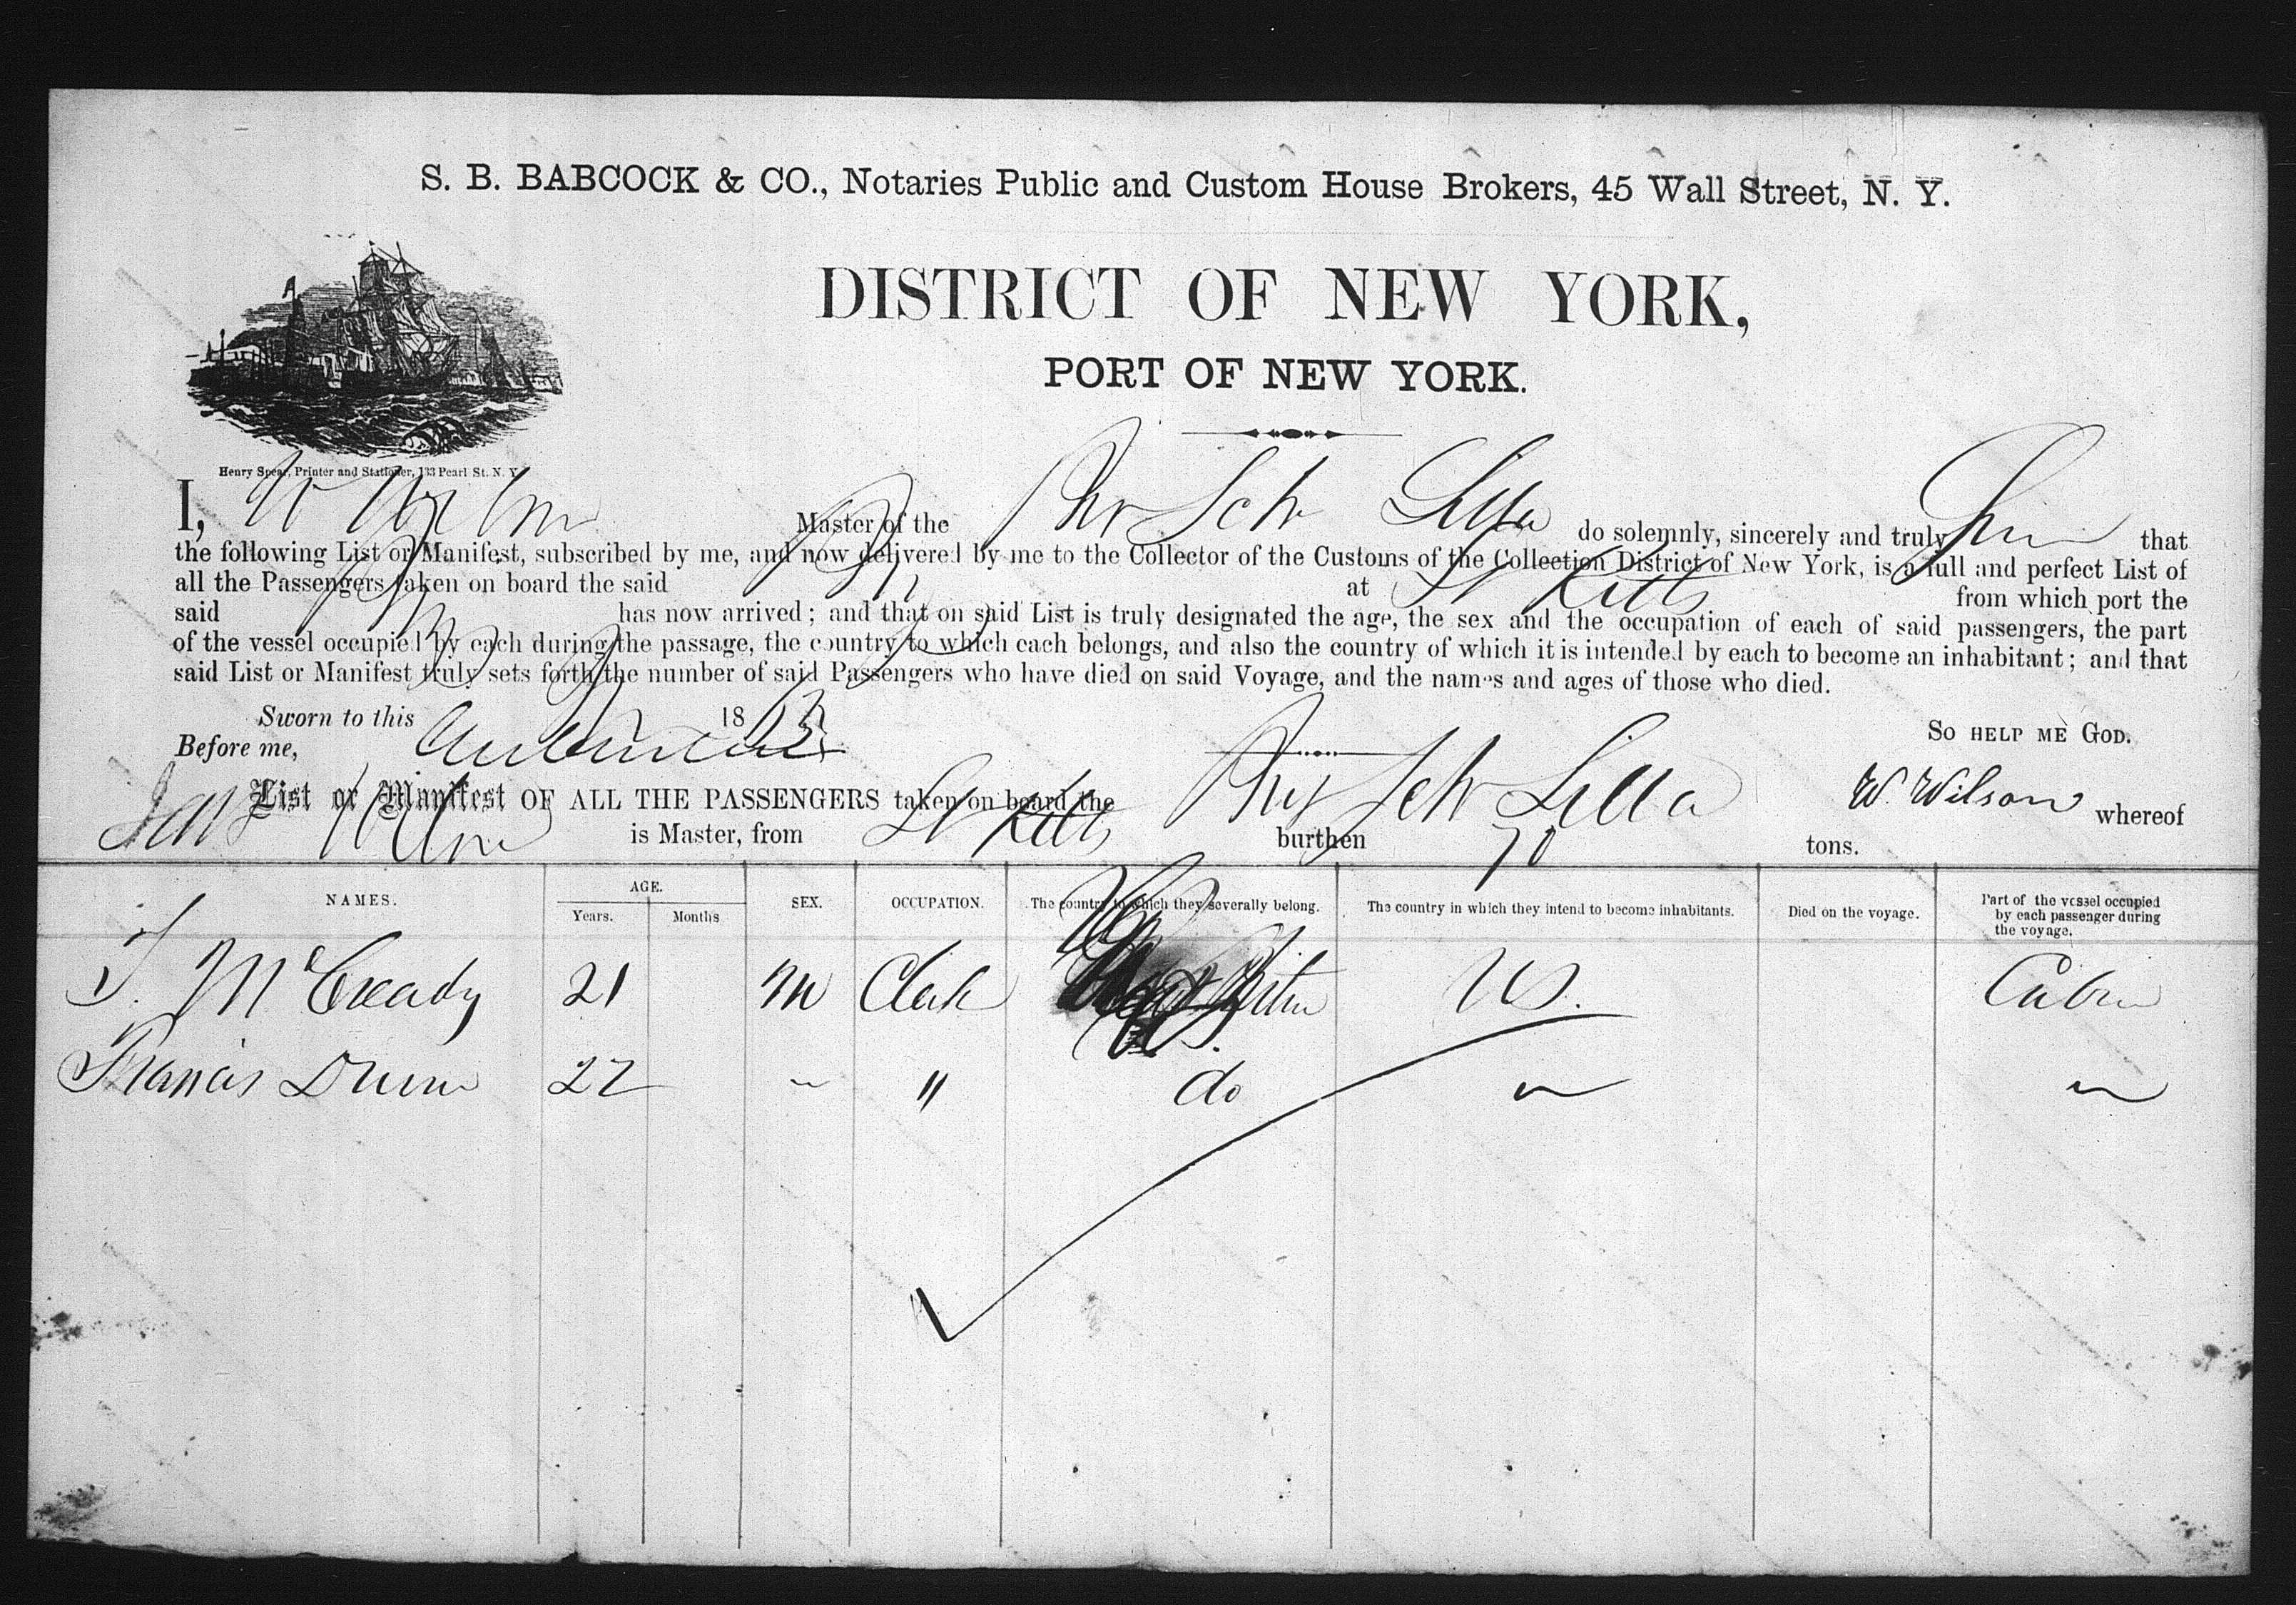 S. B. BABCOCK & CO., Notaries Public and Custom House Brokers, 45 Wall Street, N. Y.
DISTRICT OF NEW YORK,
PORT OF NEW YORK.
Henry Spear, Printer and Stationer, 133 Pearl St. N. Y.
I, W Wilson Master of the Schr Lilla do solemnly, sincerely and truly that
the following List or Manifest, subscribed by me, and now delivered by me to the Collector of the Customs of the Collection District of New York, is a full and perfect List of
all the Passengers taken on board the said at St Kitts from which port the
said has now arrived; and that on said List is truly designated the age, the sex and the occupation of each of said passengers, the part
of the vessel occupied by each during the passage, the country to which each belongs, and also the country of which it is intended by each to become an inhabitant; and that
said List or Manifest truly sets forth the number of said Passengers who have died on said Voyage, and the names and ages of those who died.
Sworn to this 186 So HELP ME GOD.
Before me,
List or Manifest OF ALL THE PASSENGERS taken on board the Schr Lilla W. Wilson whereof
Wilson is Master, from St Kitts burthen 70 tons.
NAMES. AGE. Years. Months SEX. OCCUPATION. The country to which they severally belong. The country in which they intend to become inhabitants. Died on the voyage. Part of the vessel occupied by each passenger during the voyage.
McCready 21 M Clerk US. Cabin
Francis Dunn 22 " do